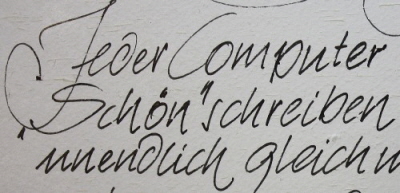 Jeder Computer
„Schön"schreiben
unendlich gleich